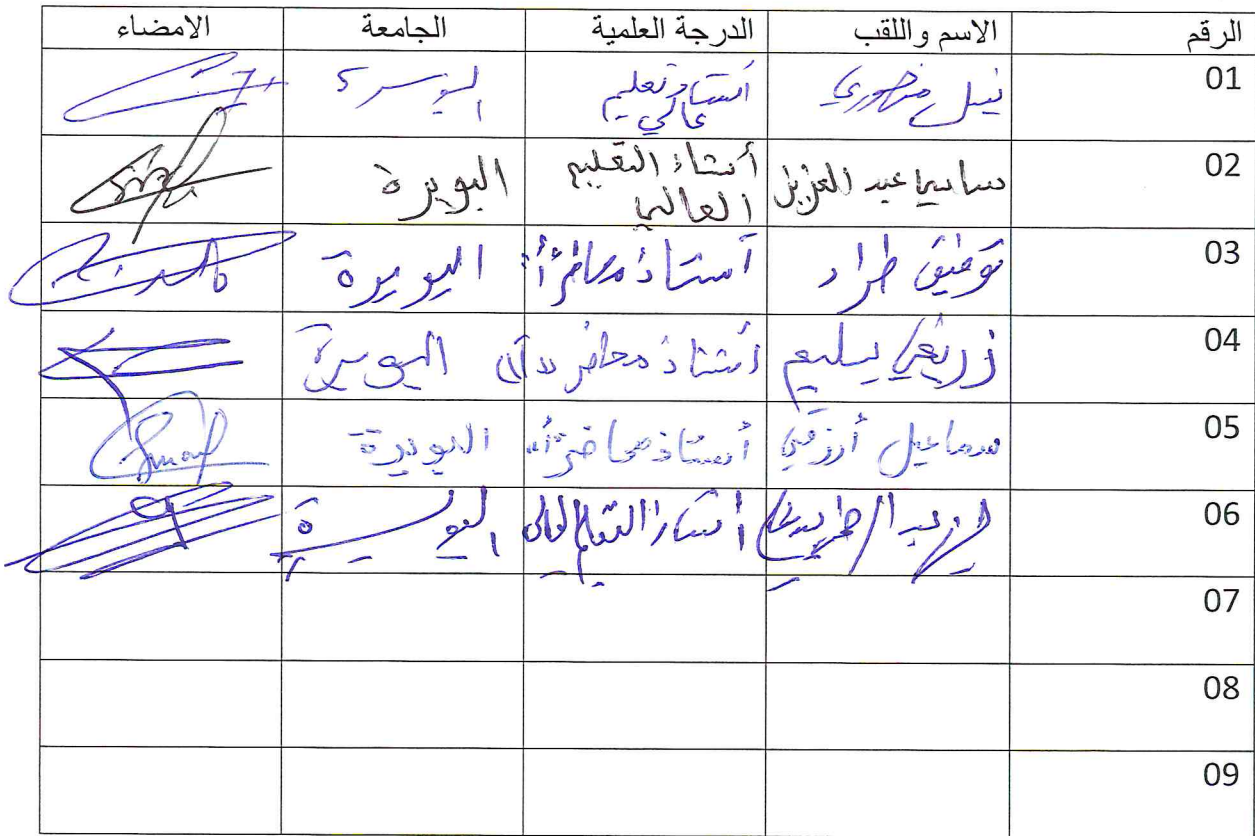 الرقم الاسم واللقب الدرجة العلمية الجامعة الامضاء
01 نبيل منصوري أستاذ تعليم عالي البويرة
02 ساسي عبد العزيز أستاذ التعليم العالي البويرة
03 توفيق طراد أستاذ محاضر "أ" البويرة
04 زريفي سليم أستاذ محاضر "أ" البويرة
05 سماعيل أرزقي أستاذ محاضر "أ" البويرة
06 عبد أستاذ التعليم العالي البويرة
07
08
09